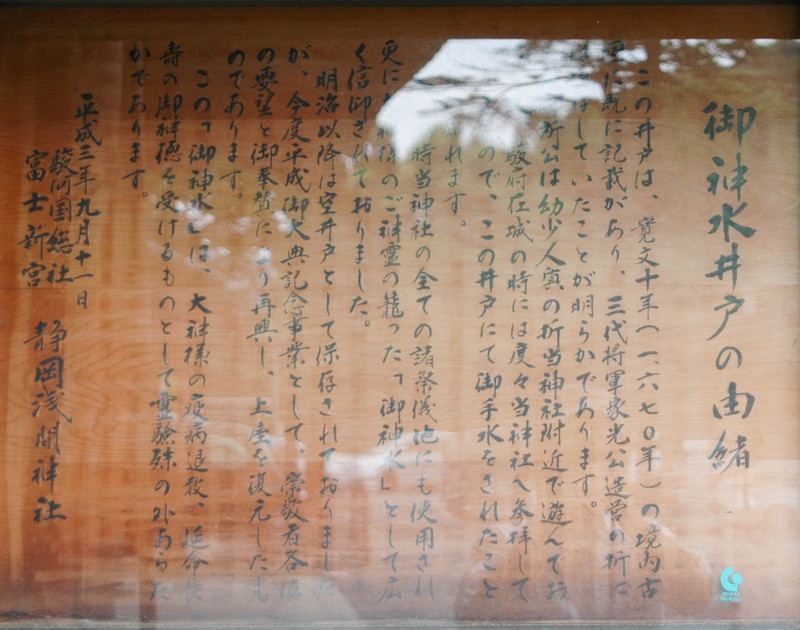 御神水井戸の由緒
この井戸は、寛文十年(一六七〇年)の境内古
図に既に記載があり、三代将軍家光公造営の折に
していたことが明らかであります。
公は幼少人質の折当神社附近で遊んでお
駿府在城の時には度々当神社へ参拝して
ので、この井戸にて御手水をされたこと
れます。
時当神社の全ての諸祭儀 にも使用され
更に 様のご神霊の籠った「御神水」として広
く信仰されておりました。
明治以降は空井戸として保存されておりました
が、今度平成御大典記念事業として、崇敬者各位
の要望と御奉賛により再興し、上屋を復元したも
のであります。
この「御神水」は、大神様の疫病退散、延命長
寿の御神徳を受けるものとして霊験殊の外あらた
かであります。
平成三年九月十一日
駿河国総社
富士新宮
静岡浅間神社